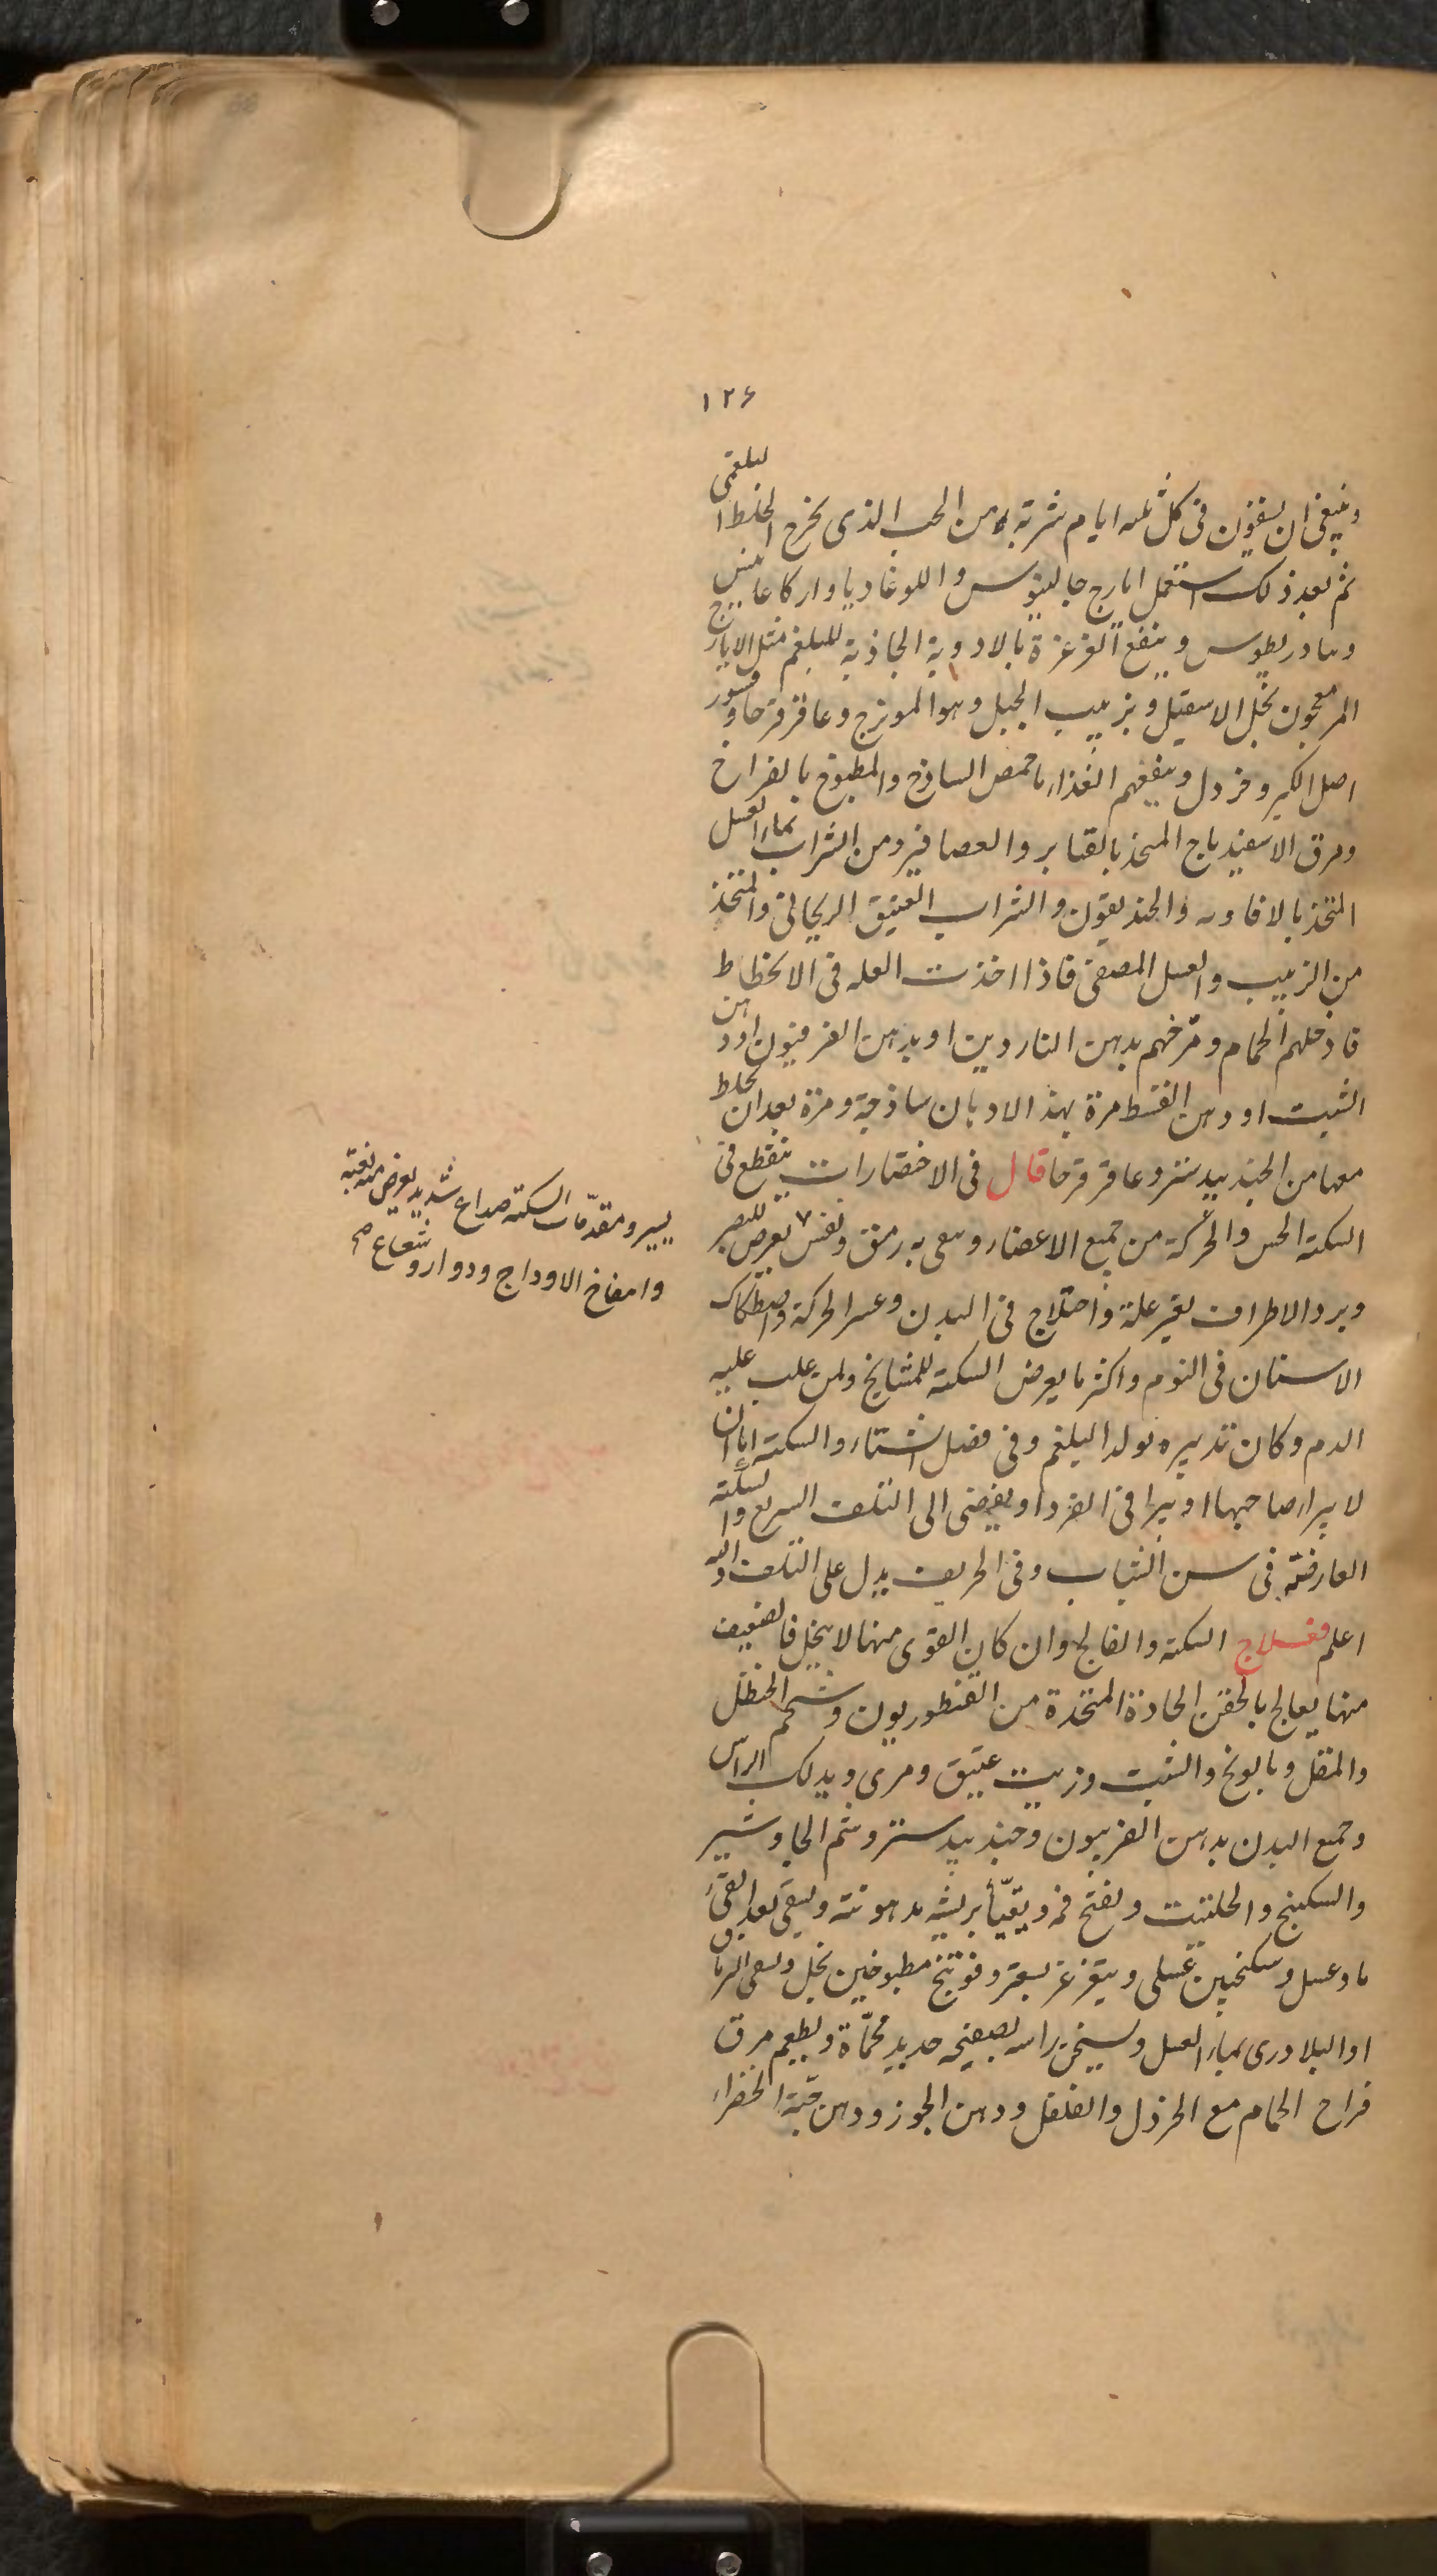 ١٢۶
وينبغى ان يسقون فى كل ثلثه ايام شربة من الحب الذى يخرج الخلط البلغمى
ثم بعد ذلك استعمل ايارج جالينوس واللوغاديا واركاغانيس
وينفع الغرغرة بالادوية الجاذبة للبلغم مثل الايارج
المر معجون بخل الاسقيل وبزبيب الجبل وهو الموىزج وعاقرقرحا وقشور
اصل الكبر وخردل وينفعهم الغذاء بماحمص الساذج والمطبوخ بالفراخ
ومرق الاسفيدباج المتخذ بالقنابر والعصافير ومن الشراب بماء العسل
المتخذ بالافاويه والخنديقون والشراب العتيق الريحانى والمتخذ
من الزبيب والعسل المصفى فاذا اخذت العله فى الانحطاط
فادخلهم الحمام ومرخهم بدهن الناردين او بدهن الفرفيون او دهن
الشبت او دهن القسط مرة بهذ الادهان ساذجة ومرة بعد ان يخلط
معها من الجندبيدستر وعاقرقرحا قال فى الاختصارات ينقطع فى
السكتة الحس والحركة من جميع الاعضاء ويبقى به رمق ونفس
يسير ومقدمات السكتة صداع شديد يعرض منه بغتة
وانتفاخ الاوداج ودوار وشعاع صح
وبرد الاطراف بغير علة واختلاج فى البدن وعسر الحركة واصطكاك
الاسنان فى النوم واكثر ما يعرض السكتة للمشايخ ولمن غلب عليه
الدم وكان تدبيره يولد البلغم وفى فصل الشتاء والسكتة اما ان
لا يبراء صاحبها او يبرا فى الفرد او يفضى الى التلف السريع والسكتة
العارضة فى سن الشباب وفى الخريف يدل على التلف والله
اعلم فعلاج السكتة والفالج وان كان القوى منها لا ينحل فالضعيف
منها يعالج بالحقن الحادة المتخذة من القنطوريون وشحم الحنظل
والمقل وبابونج والشبت وزيت عتيق ومرى ويدلك الراس
وجميع البدن بدهن الفربيون وجندبيدستر وشم الجاوشير
والسكبينج والحلتيت ويفتح فمه ويقيّأ بريشه مدهونة ويسقى بعد القىء
ماء وعسل وسكنجبين عسلى ويتغرغر بسعتر وفوتنج مطبوخين بخل ويسقى الترياق
او البلادرى بماء العسل ويسخن راسه بصفيحه حديد محماة ويطعم مرق
فراخ الحمام مع الخردل والفلفل ودهن الجوز ودهن حبة الخضراء